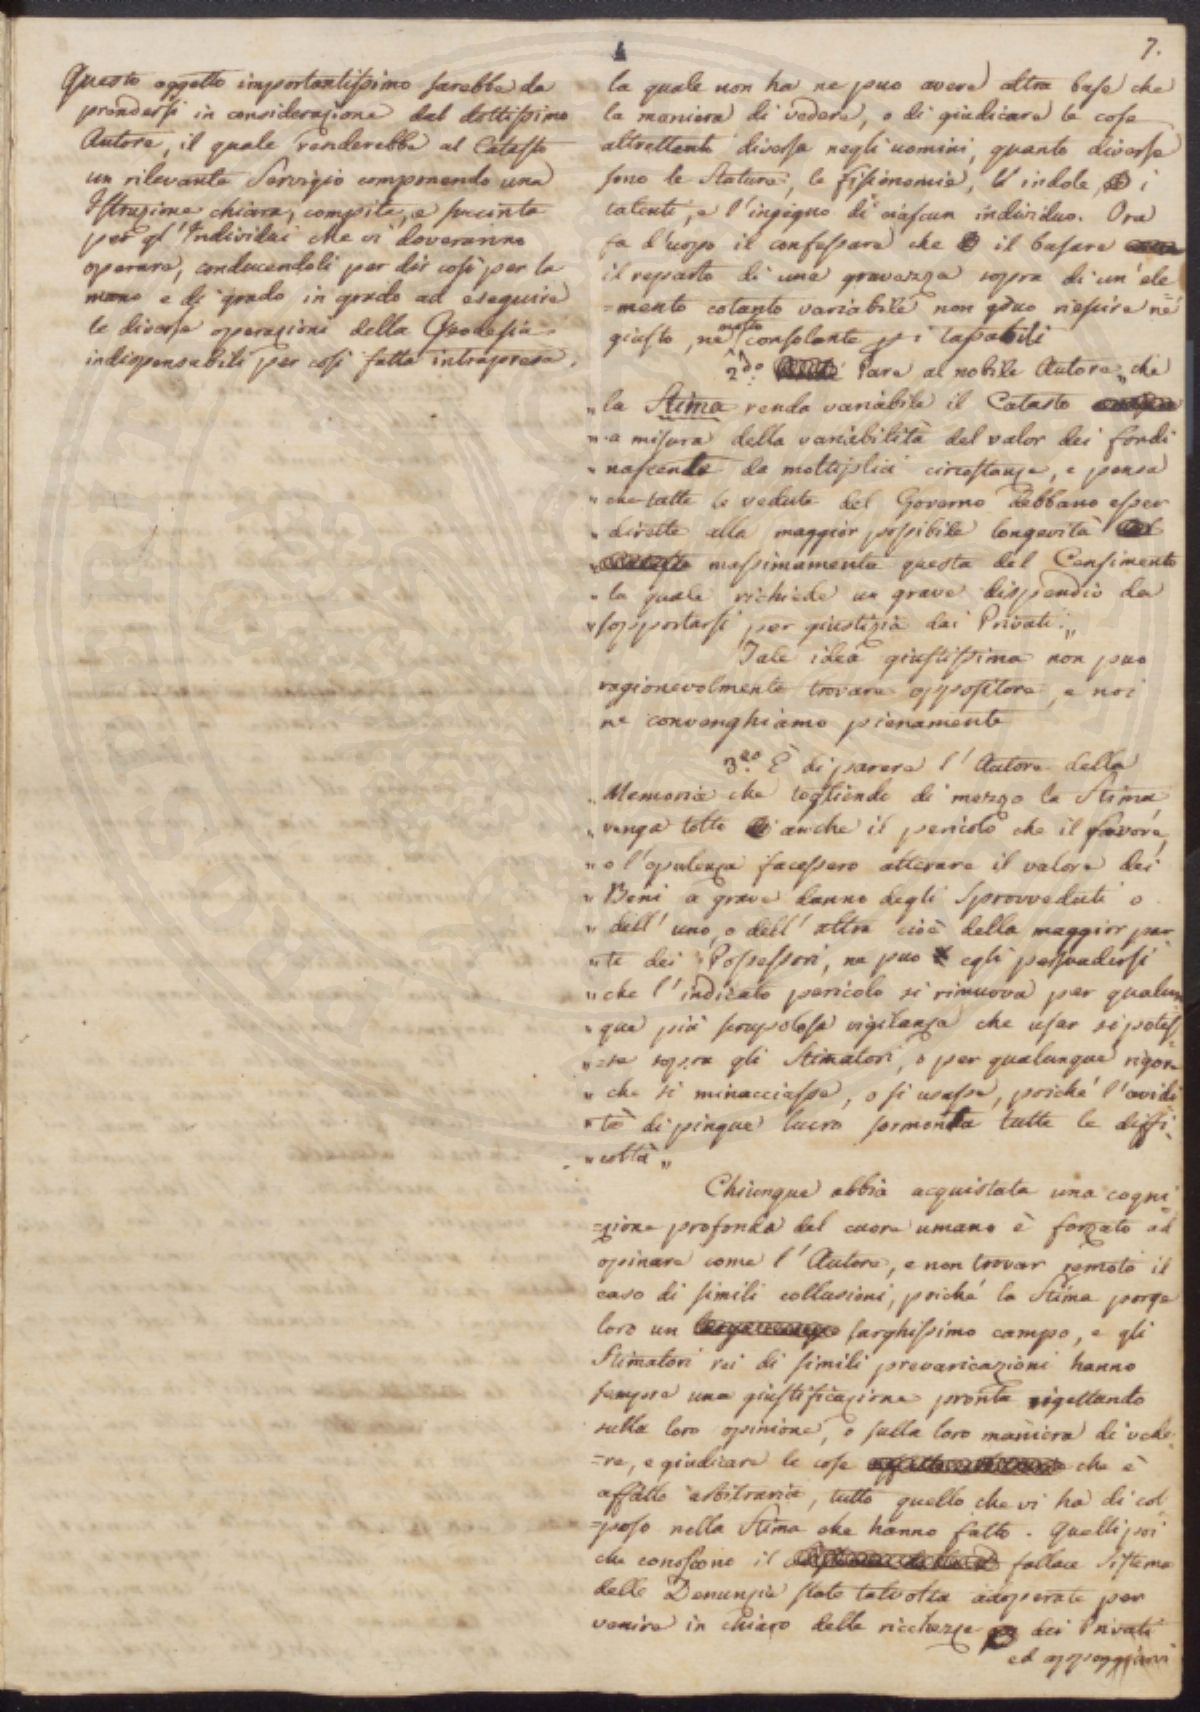 7.
Questo oggetto importantissimo sarebbe da
prendersi in considerazione dal dottissimo
Autore, il quale renderebbe al Catasto
un rilevante Servigio componendo una
Istruzione chiara, compita, e succinta
per gl'Individui che vi doveranno
operare, conducendoli per dir così per la
mano e di grado in grado ad eseguire
le diverse operazioni della Geodesia
indispensabili per così fatta intrapresa.
la quale non ha ne puo avere altra base che
la maniera di vedere, o di giudicare le cose
altrettanto diversa negli uomini, quanto diverse
sono le Stature, le fisionomie, l'indole, i
talenti, e l'ingegno di ciascun individuo. Ora
fa d'uopo il confessare che il basare
il reparto di una gravezza sopra di un'ele
=mento cotanto variabile non può riescire nè
giusto, ne molto consolante p i tassabili
2.do Pare al nobile Autore „che
„la Stima renda variabile il Catasto
„a misura della variabilità del valor dei fondi
„nascente da moltiplici circostanze, e pensa
„che tutte le vedute del Governo debbano esser
„dirette alla maggior possibile longevità
„massimamente questa del Censimento
„la quale richiede un grave dispendio da
„sopportarsi per giustizia dai Privati.„
Tale idea giustissima non puo
ragionevolmente trovare oppositore, e noi
ne convenghiamo pienamente
3.zo È di parere l'Autore della
„Memoria che togliendo di mezzo la Stima
„venga tolto anche il pericolo che il favore,
„o l'opulenza facessero alterare il valore dei
„Beni a grave danno degli Sprovveduti o
„dell'uno, o dell'altro cioè della maggior par
„te dei Possessori, ne puo egli persuadersi
„che l'indicato pericolo si rimuova per qualun
„que più scrupolosa vigilanza che usar si potes
„=se sopra gli Stimatori, o per qualunque rigore
„che si minacciasse, o si usasse, poiché l'avidi
„tà di pingue lucro sormonta tutte le diffi
„coltà„
Chiunque abbia acquistata una cogni
=zione profonda del cuore umano è forzato ad
opinare come l'Autore, e non trovar remoto il
caso di simili collusioni, poiché la Stima porge
loro un larghissimo campo, e gli
Stimatori rei di simili prevaricazioni hanno
sempre una giustificazione pronta rigettando
sulla loro opinione, o sulla loro maniera di vede
=re, e giudicare le cose che è
affatto arbitraria, tutto quello che vi ha di col
=poso nella Stima che hanno fatto. Quelli poi
che conoscono il fallace Sistema
delle Denunzie state talvolta adoperate per
venire in chiaro delle ricchezze dei Privati
ed appoggiarvi